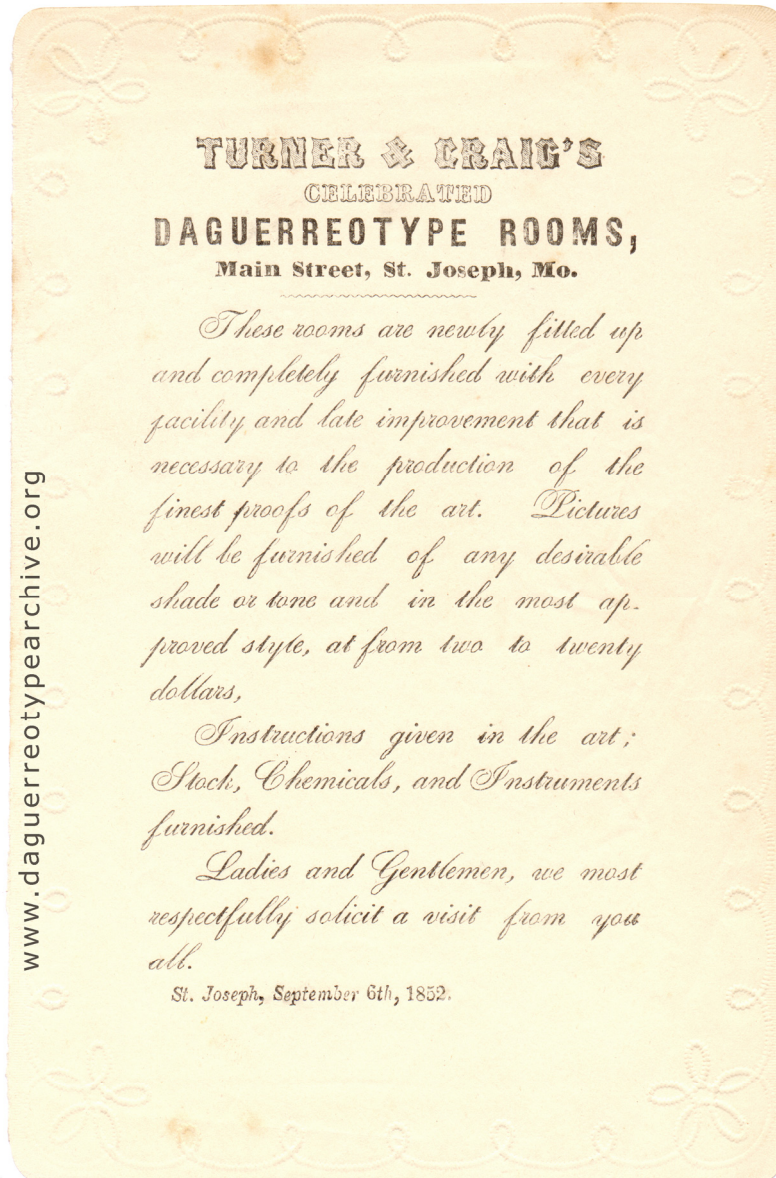 TURNER & CRAIG'S
CELEBRATED
DAGUERREOTYPE ROOMS,
Main Street, St. Joseph, Mo.
These rooms are newly fitted up
and completely furnished with every
facility and late improvement that is
necessary to the production of the
finest proofs of the art. Pictures
will be furnished of any desirable
shade or tone and in the most ap-
proved style, at from two to twenty
dollars,
Instructions given in the art;
Stock, Chemicals, and Instruments
furnished.
Ladies and Gentlemen, we most
respectfully solicit a visit from you
all.
St. Joseph, September 6th, 1852.
www.daguerreotypearchive.org